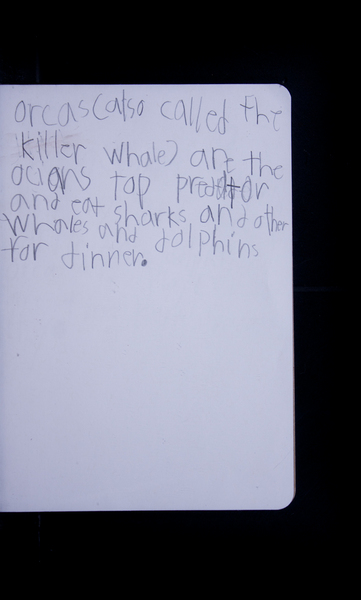 orcas (also called the
killer whale) are the
ocians top preditor
and eat sharks and other
whales and dolphins
for dinner.